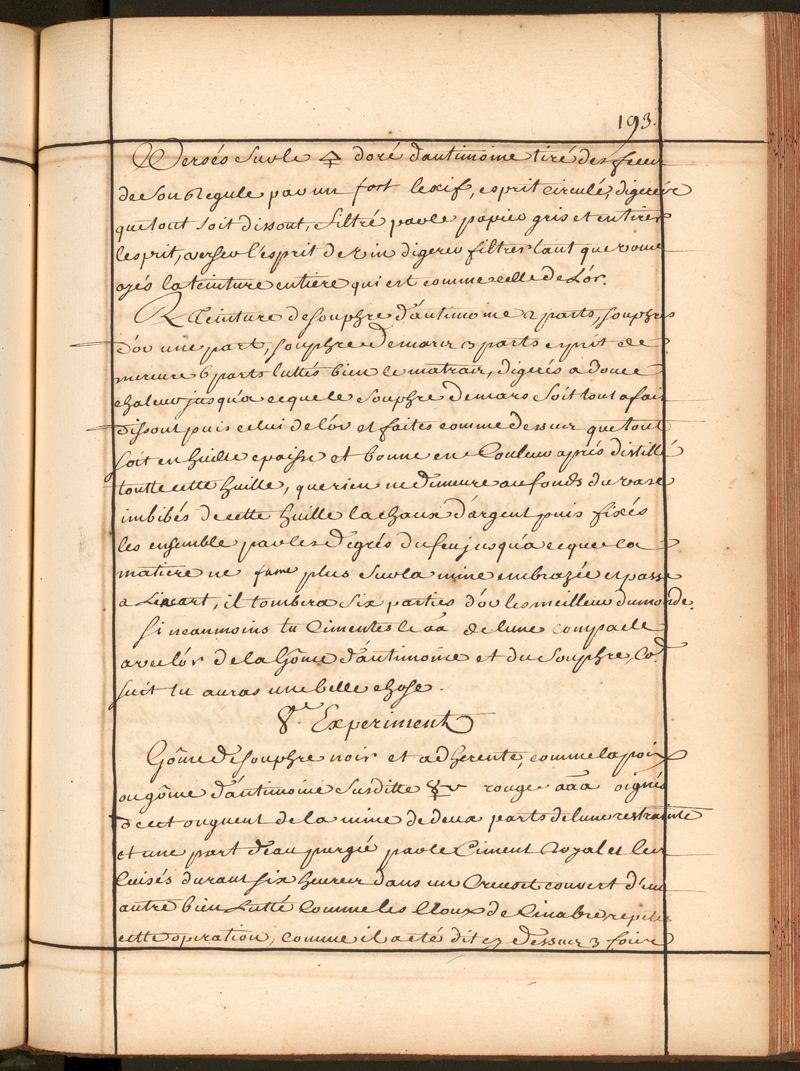 193.
Versés sur le 🜍 doré d'antimoine tiré des feces
de son Regule par un fort lexif, esprit circulé, digerer
que tout soit dissout, filtré par le papier gris et en tirer
l'esprit, verser l'esprit de vin digerer filtrer tant que vous
ayés la teinture entiere qui est comme celle de L'or.
R Teinture de souphre d'antimoine 2 parts, souphre
d'or une part, souphre de mars 3 parts esprit de
mercure 6 parts luttés bien le matrair, digerés a douce
chaleur jusqu'a ce que le souphre de mars soit tout a fait
dissout puis celui de l'or et faites comme dessus que tout
soit en huille epaisse et bonne en Couleur aprés distillé
toutte cette huille, que rien ne demeure au fonds du vase
imbibés de cette huille la chaux d'argent puis fixés
les ensemble par les degrés du feu jusqu'a ce que la
matiere ne fume plus sur la mine embrazée et passe
a Lincart, il tombera six parties d'or les meilleur du monde.
Si neanmoins tu Cimentes le aa de lune compacte
avec l'or de la Gôme d'antimoine et du souphre,
suit tu auras une belle chose.
8.e Experiment
Gôme de souphre noir et adherente, comme la poix
ou gôme d'antimoine susditte rouge aaa oignés
de cet onguent de la mine de deux parts de lune restrainte
et une part d'eau purgié par le Ciment Royal et les
cuisés durant six heures dans un Creuset couvert d'un
autre bien Lutté Comme les Cloux de Cinabre repeter
cette operation, comme il a eté dit cy dessus 3 fois